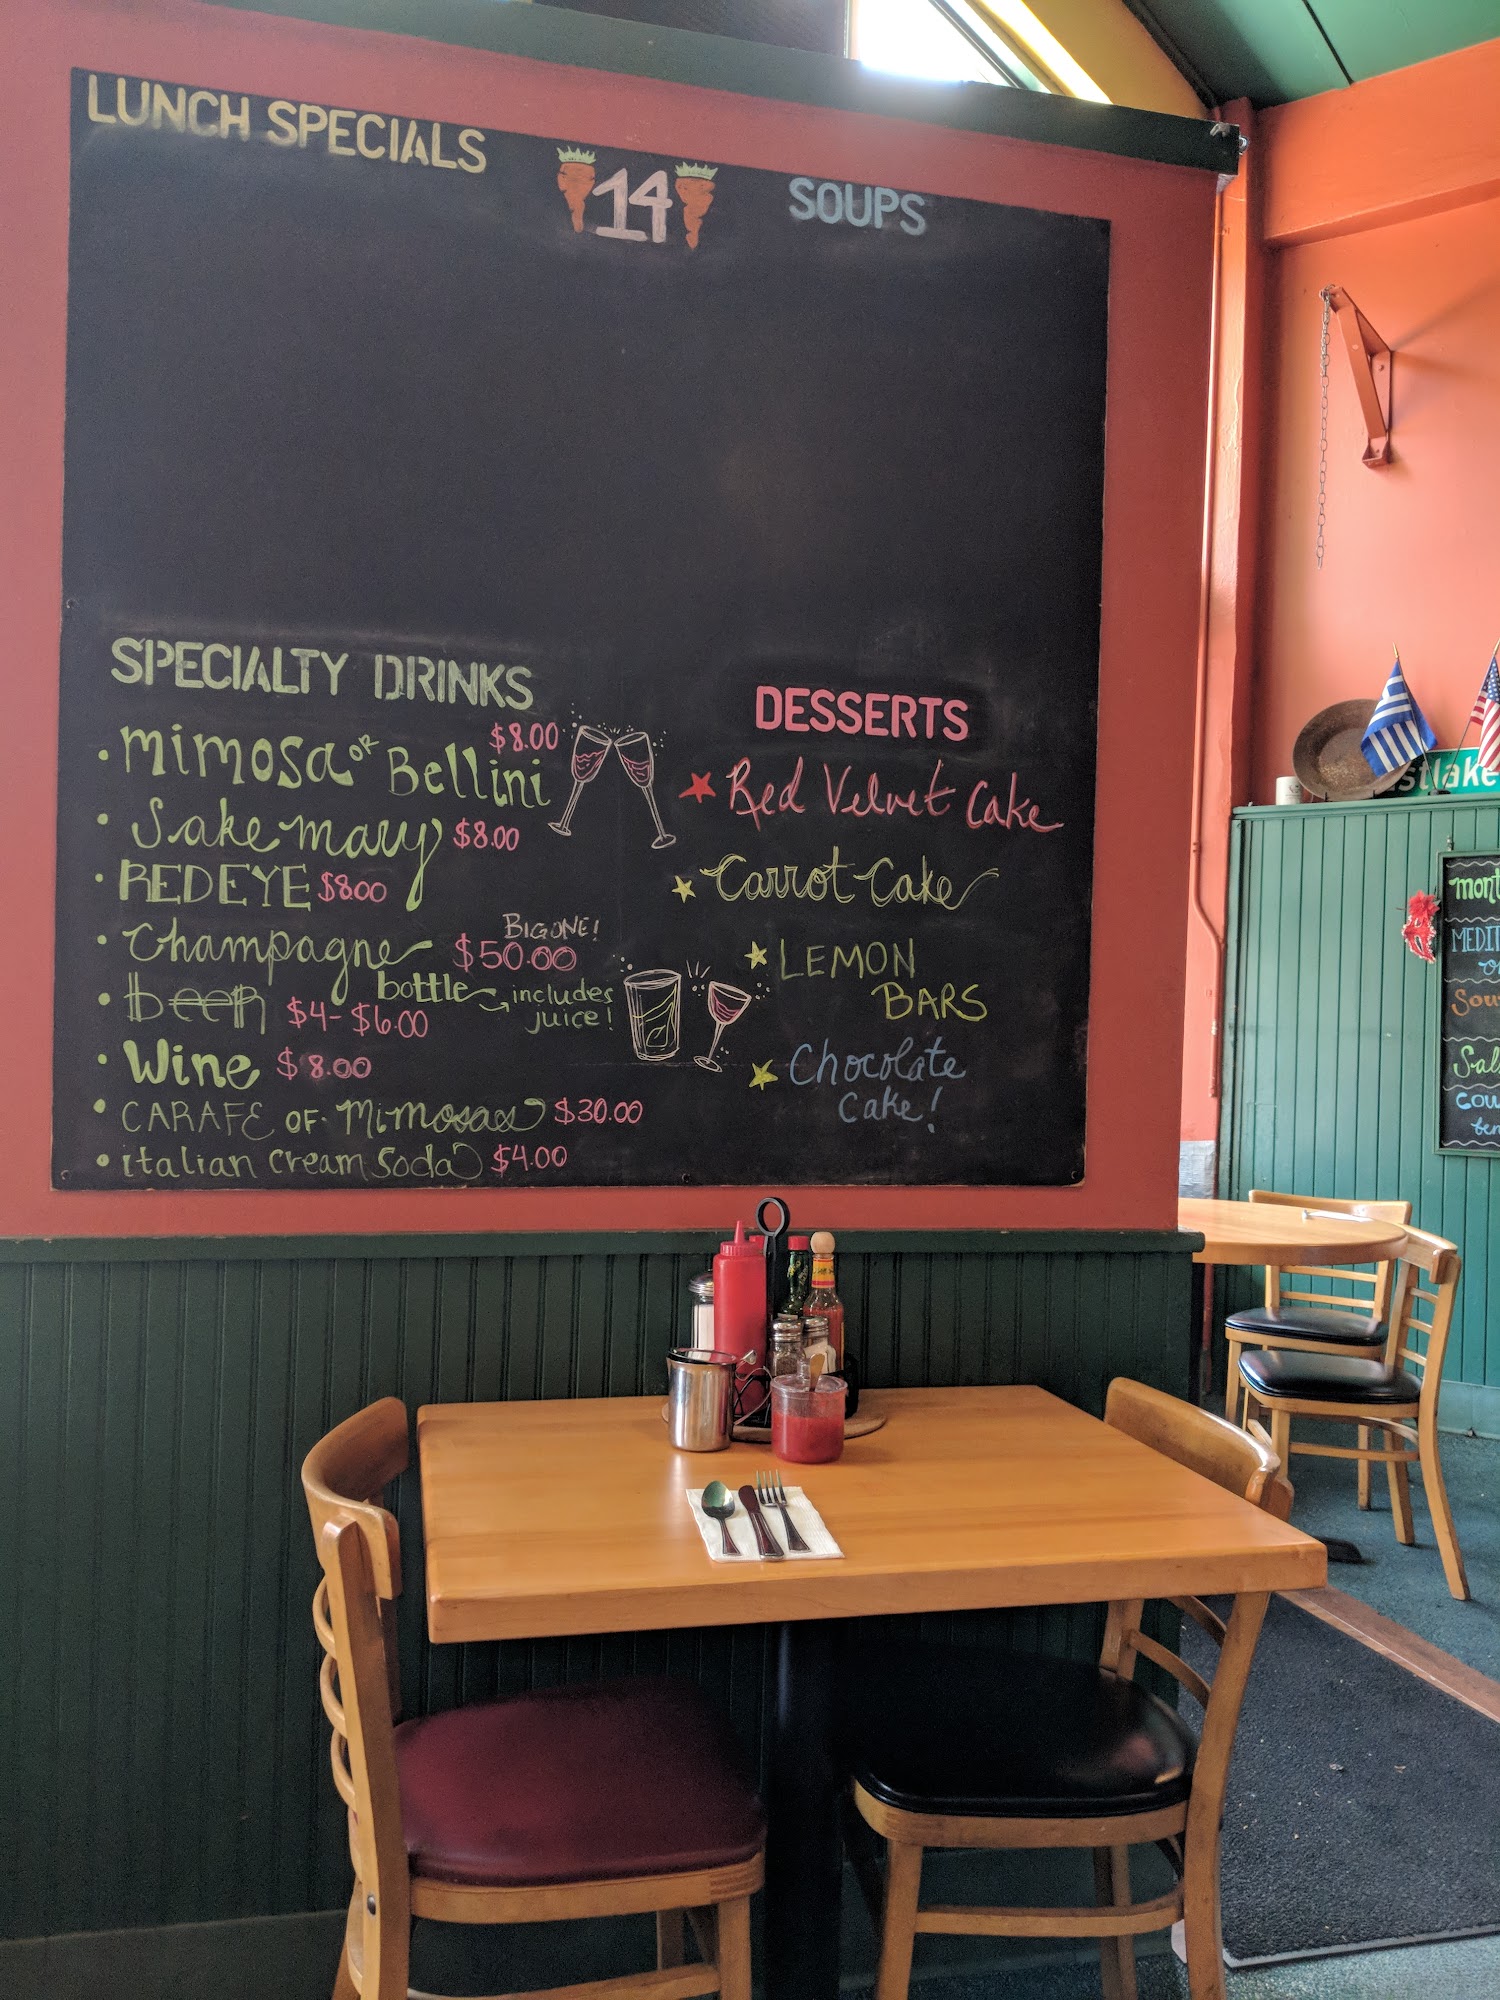 LUNCH SPECIALS
14
SOUPS
SPECIALTY DRINKS
• mimosa OR Bellini $8.00
• Sake mary $8.00
• REDEYE $8.00
• Champagne bottle $50.00
BIG ONE!
includes
juice!
• beer $4-$6.00
• Wine $8.00
• CARAFE OF Mimosas $30.00
• italian cream Soda $4.00
DESSERTS
Red Velvet Cake
Carrot Cake
LEMON
BARS
Chocolate
Cake!
stlake
mont
MEDIT
Sou
Sal
cou
ben